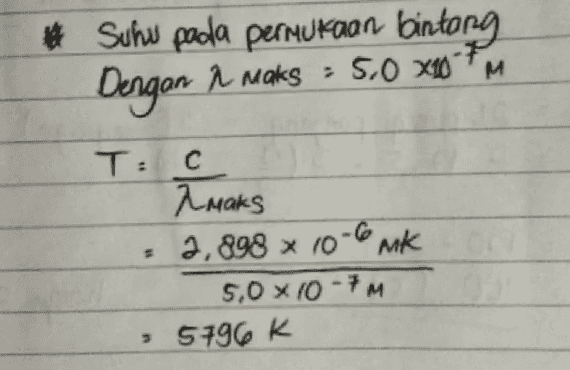 * Suhu pada permukaan bintang
Dengan λ maks = 5,0 x10⁻⁷ M
T = C
λ maks
= 2,898 x 10⁻⁶ mK
5,0 x 10⁻⁷ M
= 5796 K